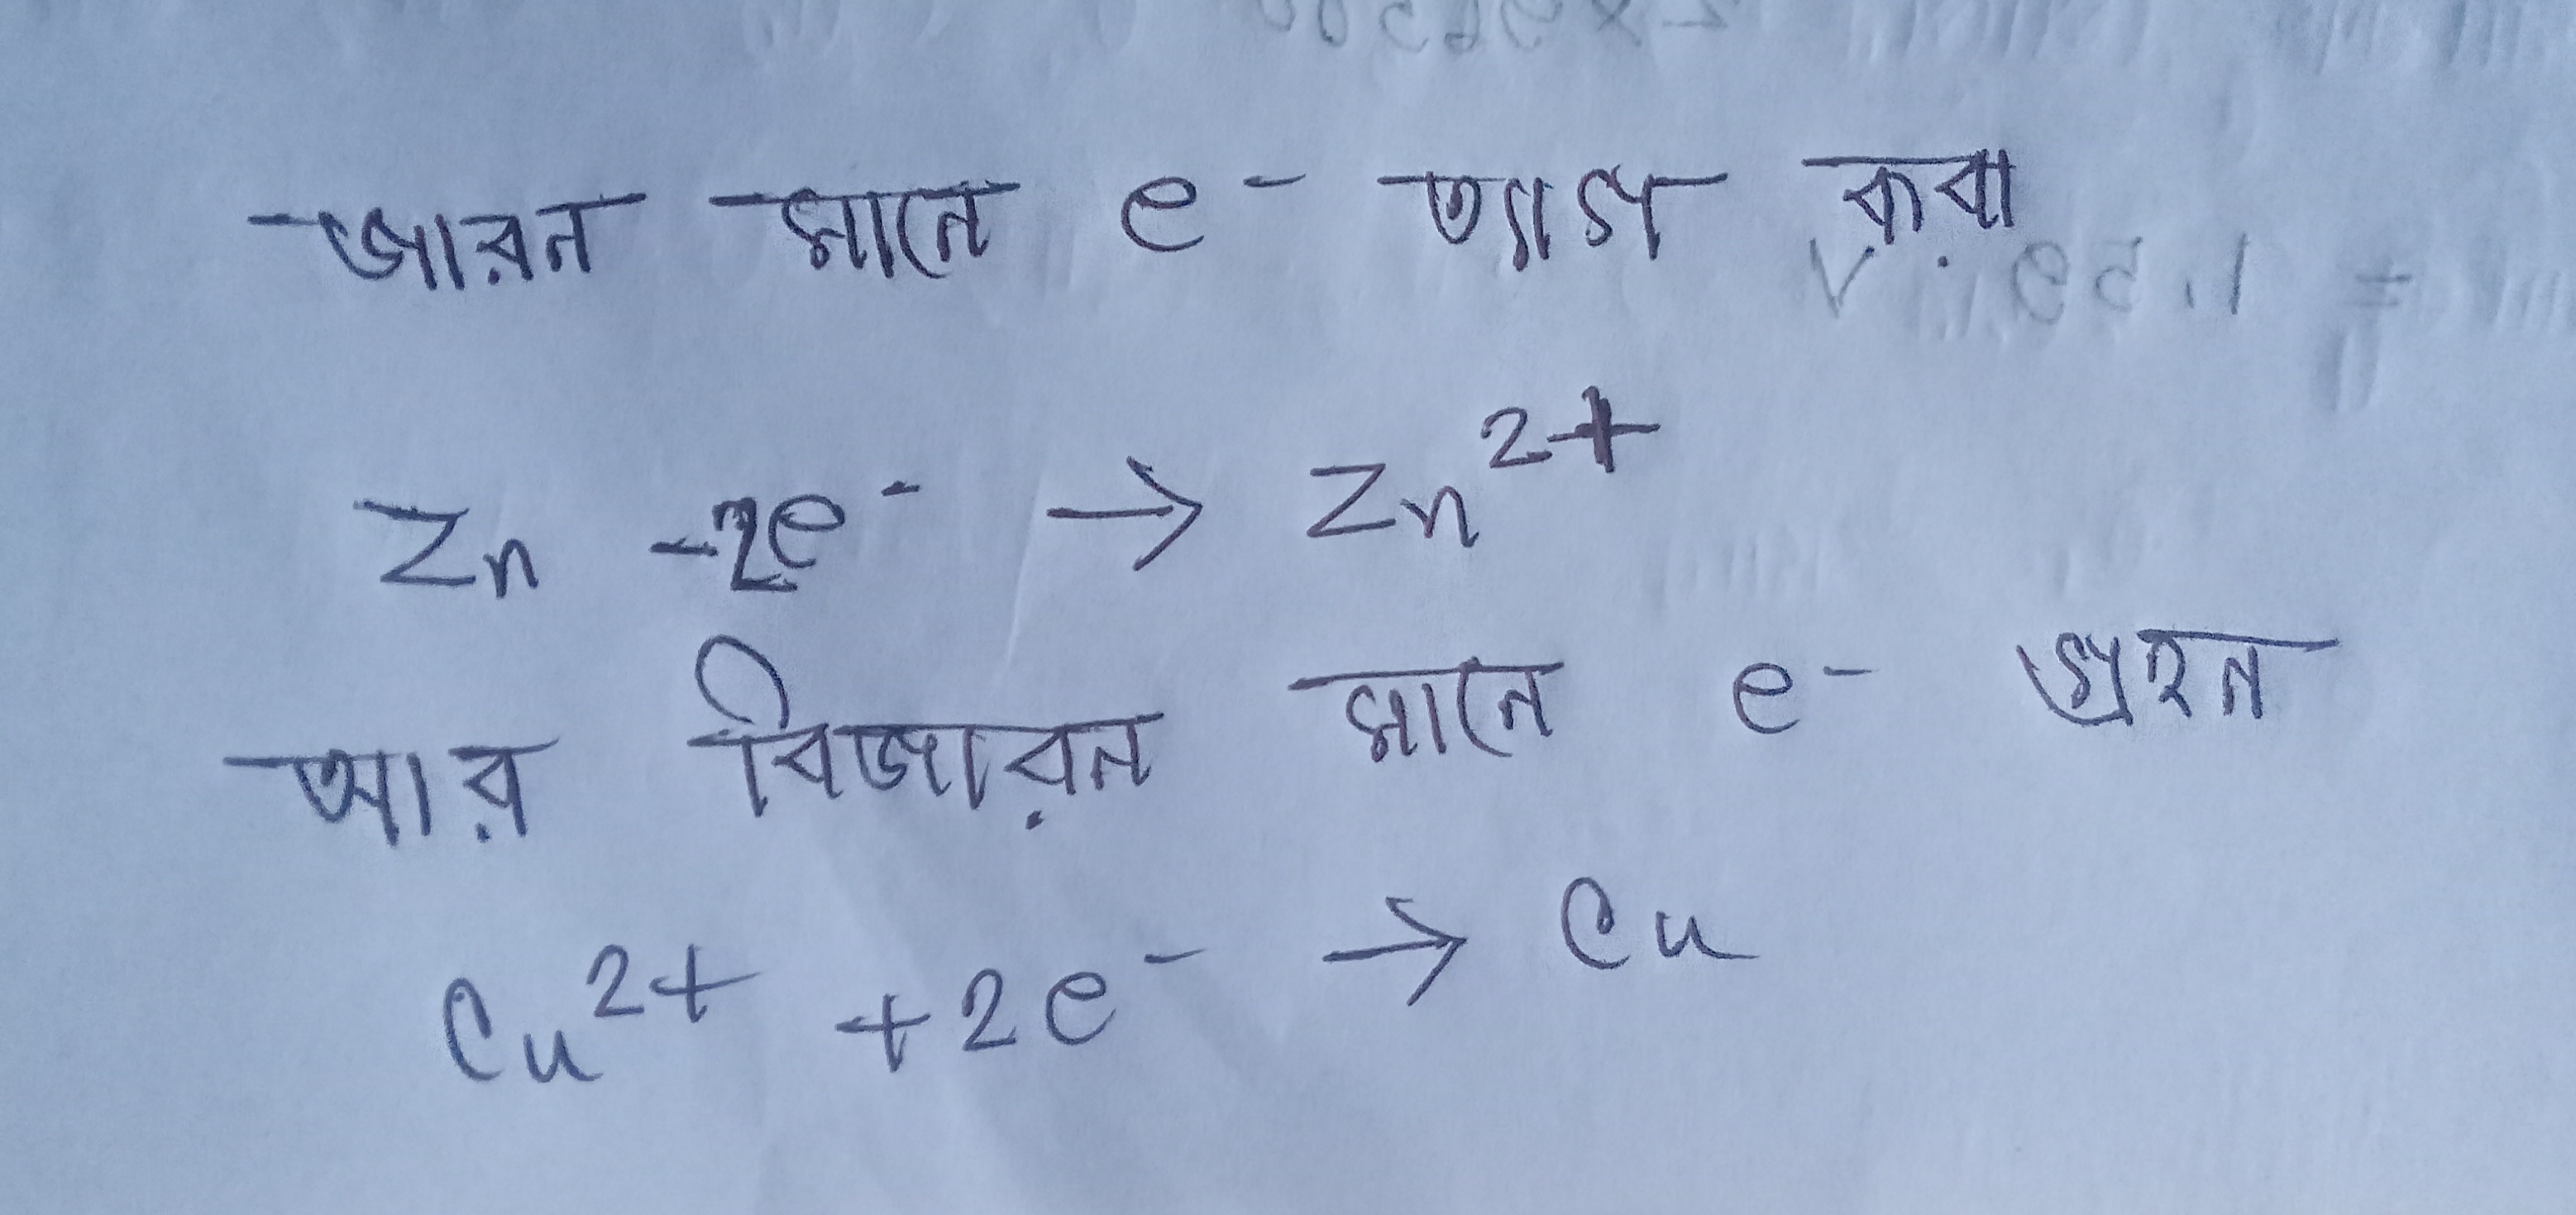 জারন মানে e⁻ ত্যাগ করা
Zn -2e⁻ → Zn²⁺
আর বিজারন মানে e⁻ গ্রহন
Cu²⁺ +2e⁻ → Cu